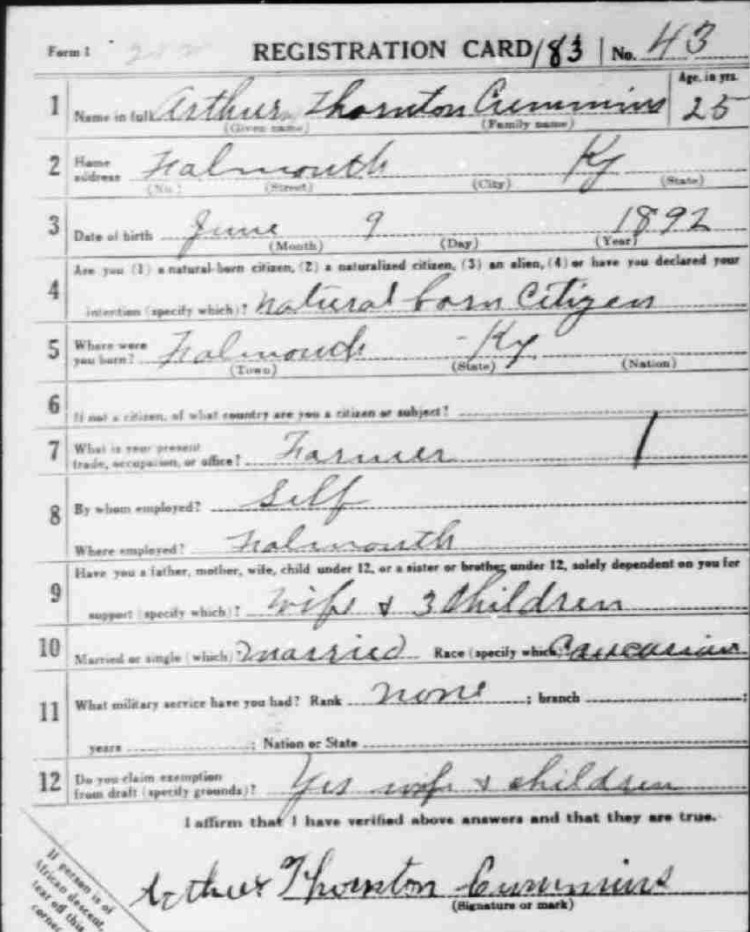 Form 1 REGISTRATION CARD 183 No. 43
Age, in yrs.
1 Name in full Arthur Thornton Cummins 25
(Given name) (Family name)
2 Home address Falmouth Ky
(No.) (Street) (City) (State)
3 Date of birth June 9 1892
(Month) (Day) (Year)
Are you (1) a natural-born citizen, (2) a naturalized citizen, (3) an alien, (4) or have you declared your
4 intention (specify which)? natural born Citizen
5 Where were you born? Falmouth - Ky
(Town) (State) (Nation)
6 If not a citizen, of what country are you a citizen or subject?
7 What is your present trade, occupation, or office? Farmer
8 By whom employed? Self
Where employed? Falmouth
Have you a father, mother, wife, child under 12, or a sister or brother under 12, solely dependent on you for
9 support (specify which)? wife & 3 Children
10 Married or single (which)? married Race (specify which)? Caucasian
11 What military service have you had? Rank none ; branch ;
years ; Nation or State
12 Do you claim exemption from draft (specify grounds)? Yes wife & children
I affirm that I have verified above answers and that they are true.
Arthur Thornton Cummins
(Signature or mark)
If person is of
African descent,
tear off this
corner